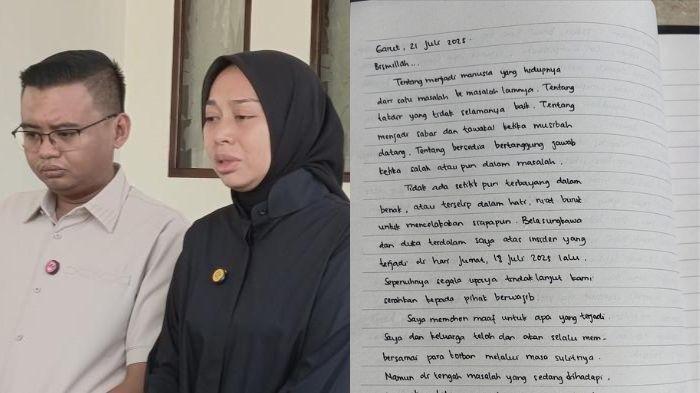 Garut, 21 Juli 2025.
Bismillah...
Tentang menjadi manusia yang hidupnya
dari satu masalah ke masalah lainnya. Tentang
takdir yang tidak selamanya baik. Tentang
menjadi sabar dan tawakal ketika musibah
datang. Tentang bersedia bertanggung jawab
ketika salah atau pun dalam masalah.
Tidak ada sedikit pun terbayang dalam
benak, atau terselip dalam hati, niat buruk
untuk mencelakakan siapapun. Belasungkawa
dan duka terdalam saya atas insiden yang
terjadi di hari Jumat, 18 Juli 2025 lalu.
Sepenuhnya segala upaya tindak lanjut kami
serahkan kepada pihak berwajib.
Saya memohon maaf untuk apa yang terjadi.
Saya dan keluarga telah dan akan selalu mem-
bersamai para korban melalui masa sulitnya.
Namun di tengah masalah yang sedang dihadapi,